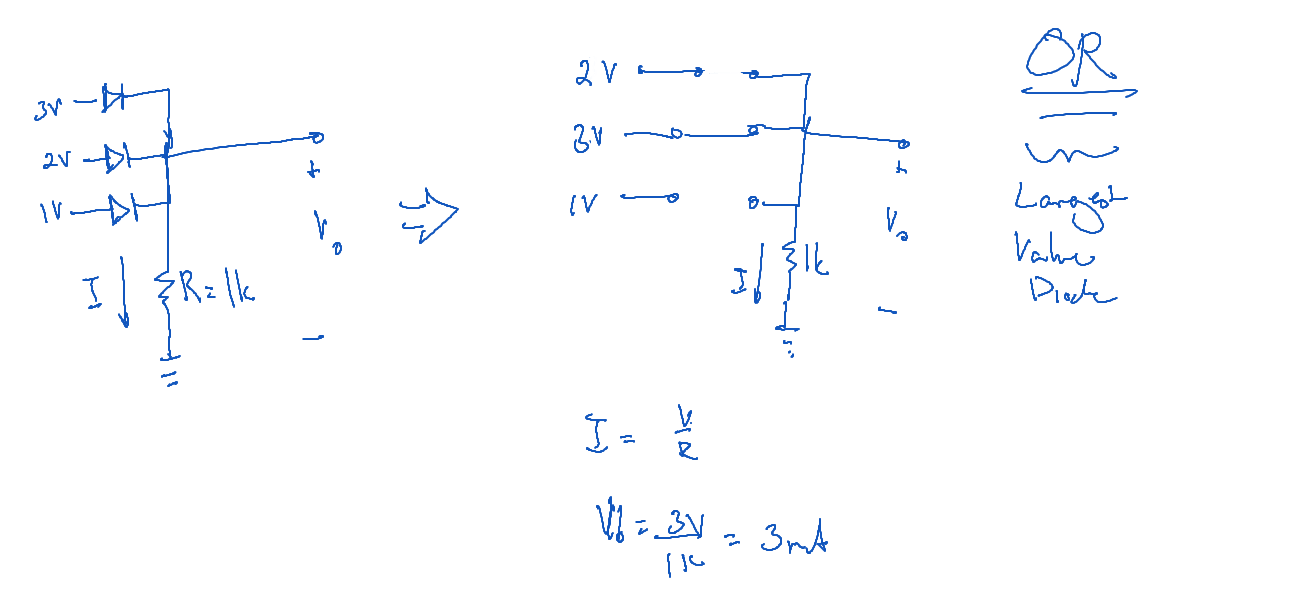 3V
2V
1V
I
R = 1k
+
V₀
−
2V
3V
1V
I
1k
+
V₀
−
OR
Largest
Value
Diode
I = V/R
V₀ = 3V/1K = 3mA